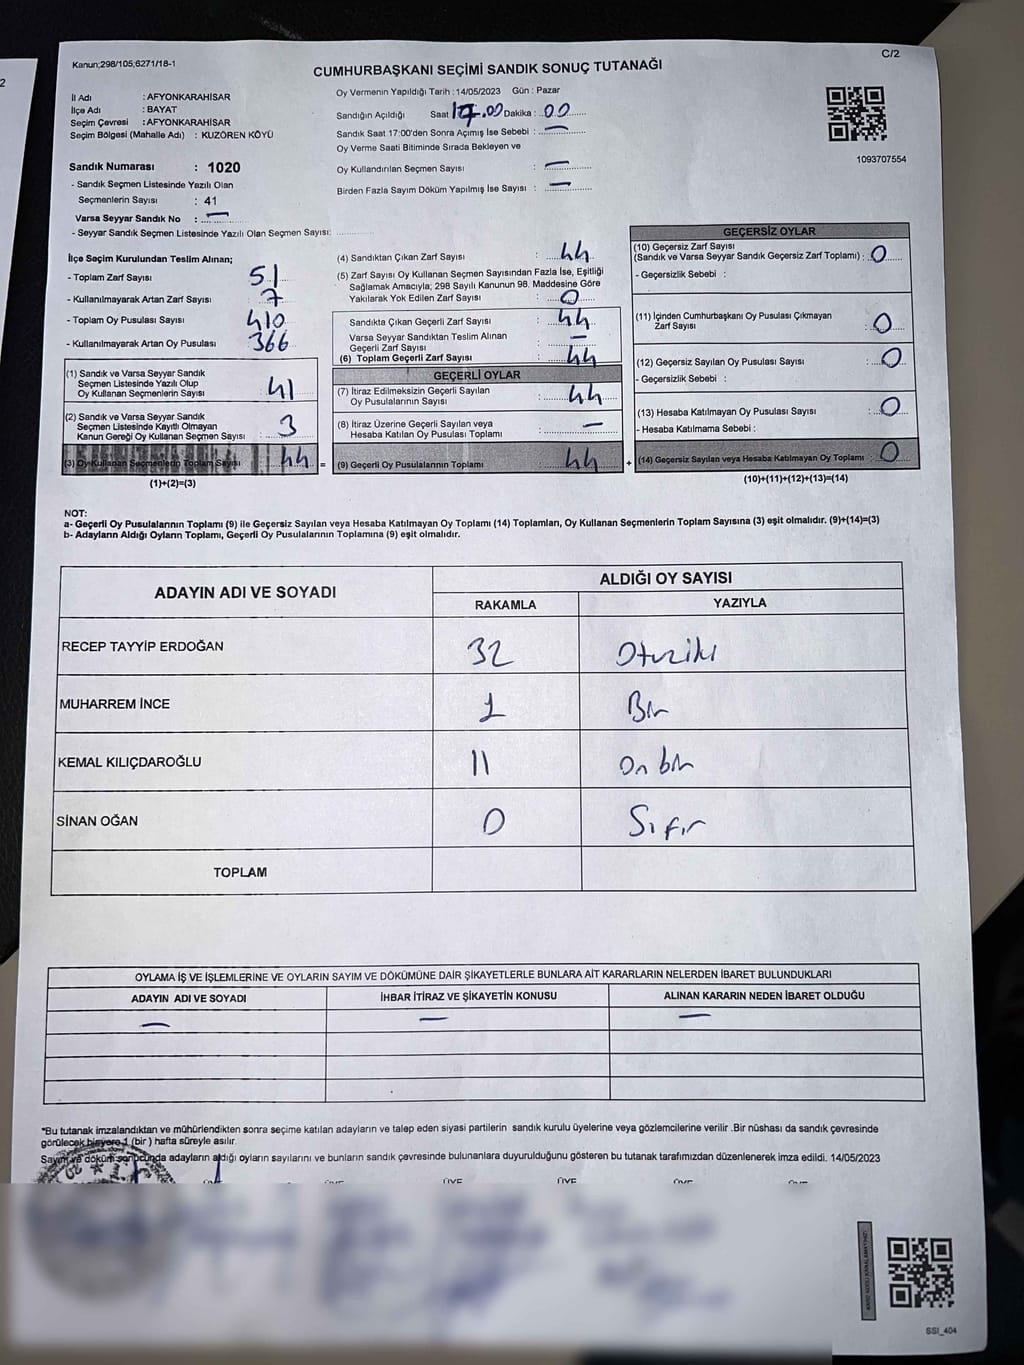 C/2
Kanun;298/105;6271/18-1
CUMHURBAŞKANI SEÇİMİ SANDIK SONUÇ TUTANAĞI
İl Adı : AFYONKARAHİSAR
İlçe Adı : BAYAT
Seçim Çevresi : AFYONKARAHİSAR
Seçim Bölgesi (Mahalle Adı) : KUZÖREN KÖYÜ
Sandık Numarası : 1020
- Sandık Seçmen Listesinde Yazılı Olan
Seçmenlerin Sayısı : 41
Varsa Seyyar Sandık No : —
- Seyyar Sandık Seçmen Listesinde Yazılı Olan Seçmen Sayısı:
Oy Vermenin Yapıldığı Tarih : 14/05/2023 Gün : Pazar
Sandığın Açıldığı Saat 17.00 Dakika : 00
Sandık Saat 17:00'den Sonra Açımış İse Sebebi : —
Oy Verme Saati Bitiminde Sırada Bekleyen ve
Oy Kullandırılan Seçmen Sayısı : —
Birden Fazla Sayım Döküm Yapılmış İse Sayısı : —
1093707554
İlçe Seçim Kurulundan Teslim Alınan;
- Toplam Zarf Sayısı : 51
- Kullanılmayarak Artan Zarf Sayısı : 7
- Toplam Oy Pusulası Sayısı : 410
- Kullanılmayarak Artan Oy Pusulası : 366
(1) Sandık ve Varsa Seyyar Sandık
Seçmen Listesinde Yazılı Olup
Oy Kullanan Seçmenlerin Sayısı : 41
(2) Sandık ve Varsa Seyyar Sandık
Seçmen Listesinde Kayıtlı Olmayan
Kanun Gereği Oy Kullanan Seçmen Sayısı : 3
(3) Oy Kullanan Seçmenlerin Toplam Sayısı : 44 =
(1)+(2)=(3)
(4) Sandıktan Çıkan Zarf Sayısı : 44
(5) Zarf Sayısı Oy Kullanan Seçmen Sayısından Fazla İse, Eşitliği
Sağlamak Amacıyla; 298 Sayılı Kanunun 98. Maddesine Göre
Yakılarak Yok Edilen Zarf Sayısı : 0
Sandıkta Çıkan Geçerli Zarf Sayısı : 44
Varsa Seyyar Sandıktan Teslim Alınan
Geçerli Zarf Sayısı : —
(6) Toplam Geçerli Zarf Sayısı : 44
GEÇERLİ OYLAR
(7) İtiraz Edilmeksizin Geçerli Sayılan
Oy Pusulalarının Sayısı : 44
(8) İtiraz Üzerine Geçerli Sayılan veya
Hesaba Katılan Oy Pusulası Toplamı : —
(9) Geçerli Oy Pusulalarının Toplamı : 44 +
GEÇERSİZ OYLAR
(10) Geçersiz Zarf Sayısı
(Sandık ve Varsa Seyyar Sandık Geçersiz Zarf Toplamı) : 0
- Geçersizlik Sebebi :
(11) İçinden Cumhurbaşkanı Oy Pusulası Çıkmayan
Zarf Sayısı : 0
(12) Geçersiz Sayılan Oy Pusulası Sayısı : 0
- Geçersizlik Sebebi :
(13) Hesaba Katılmayan Oy Pusulası Sayısı : 0
- Hesaba Katılmama Sebebi :
(14) Geçersiz Sayılan veya Hesaba Katılmayan Oy Toplamı : 0
(10)+(11)+(12)+(13)=(14)
NOT:
a- Geçerli Oy Pusulalarının Toplamı (9) ile Geçersiz Sayılan veya Hesaba Katılmayan Oy Toplamı (14) Toplamları, Oy Kullanan Seçmenlerin Toplam Sayısına (3) eşit olmalıdır. (9)+(14)=(3)
b- Adayların Aldığı Oyların Toplamı, Geçerli Oy Pusulalarının Toplamına (9) eşit olmalıdır.
ADAYIN ADI VE SOYADI ALDIĞI OY SAYISI
RAKAMLA YAZIYLA
RECEP TAYYİP ERDOĞAN 32 Otuziki
MUHARREM İNCE 1 Bir
KEMAL KILIÇDAROĞLU 11 On bir
SİNAN OĞAN 0 Sıfır
TOPLAM
OYLAMA İŞ VE İŞLEMLERİNE VE OYLARIN SAYIM VE DÖKÜMÜNE DAİR ŞİKAYETLERLE BUNLARA AİT KARARLARIN NELERDEN İBARET BULUNDUKLARI
ADAYIN ADI VE SOYADI İHBAR İTİRAZ VE ŞİKAYETİN KONUSU ALINAN KARARIN NEDEN İBARET OLDUĞU
— — —
*Bu tutanak imzalandıktan ve mühürlendikten sonra seçime katılan adayların ve talep eden siyasi partilerin sandık kurulu üyelerine veya gözlemcilerine verilir .Bir nüshası da sandık çevresinde
görülecek bir yere 1 (bir ) hafta süreyle asılır.
Sayım ve döküm sonucunda adayların aldığı oyların sayılarını ve bunların sandık çevresinde bulunanlara duyurulduğunu gösteren bu tutanak tarafımızdan düzenlenerek imza edildi. 14/05/2023
SSI_404